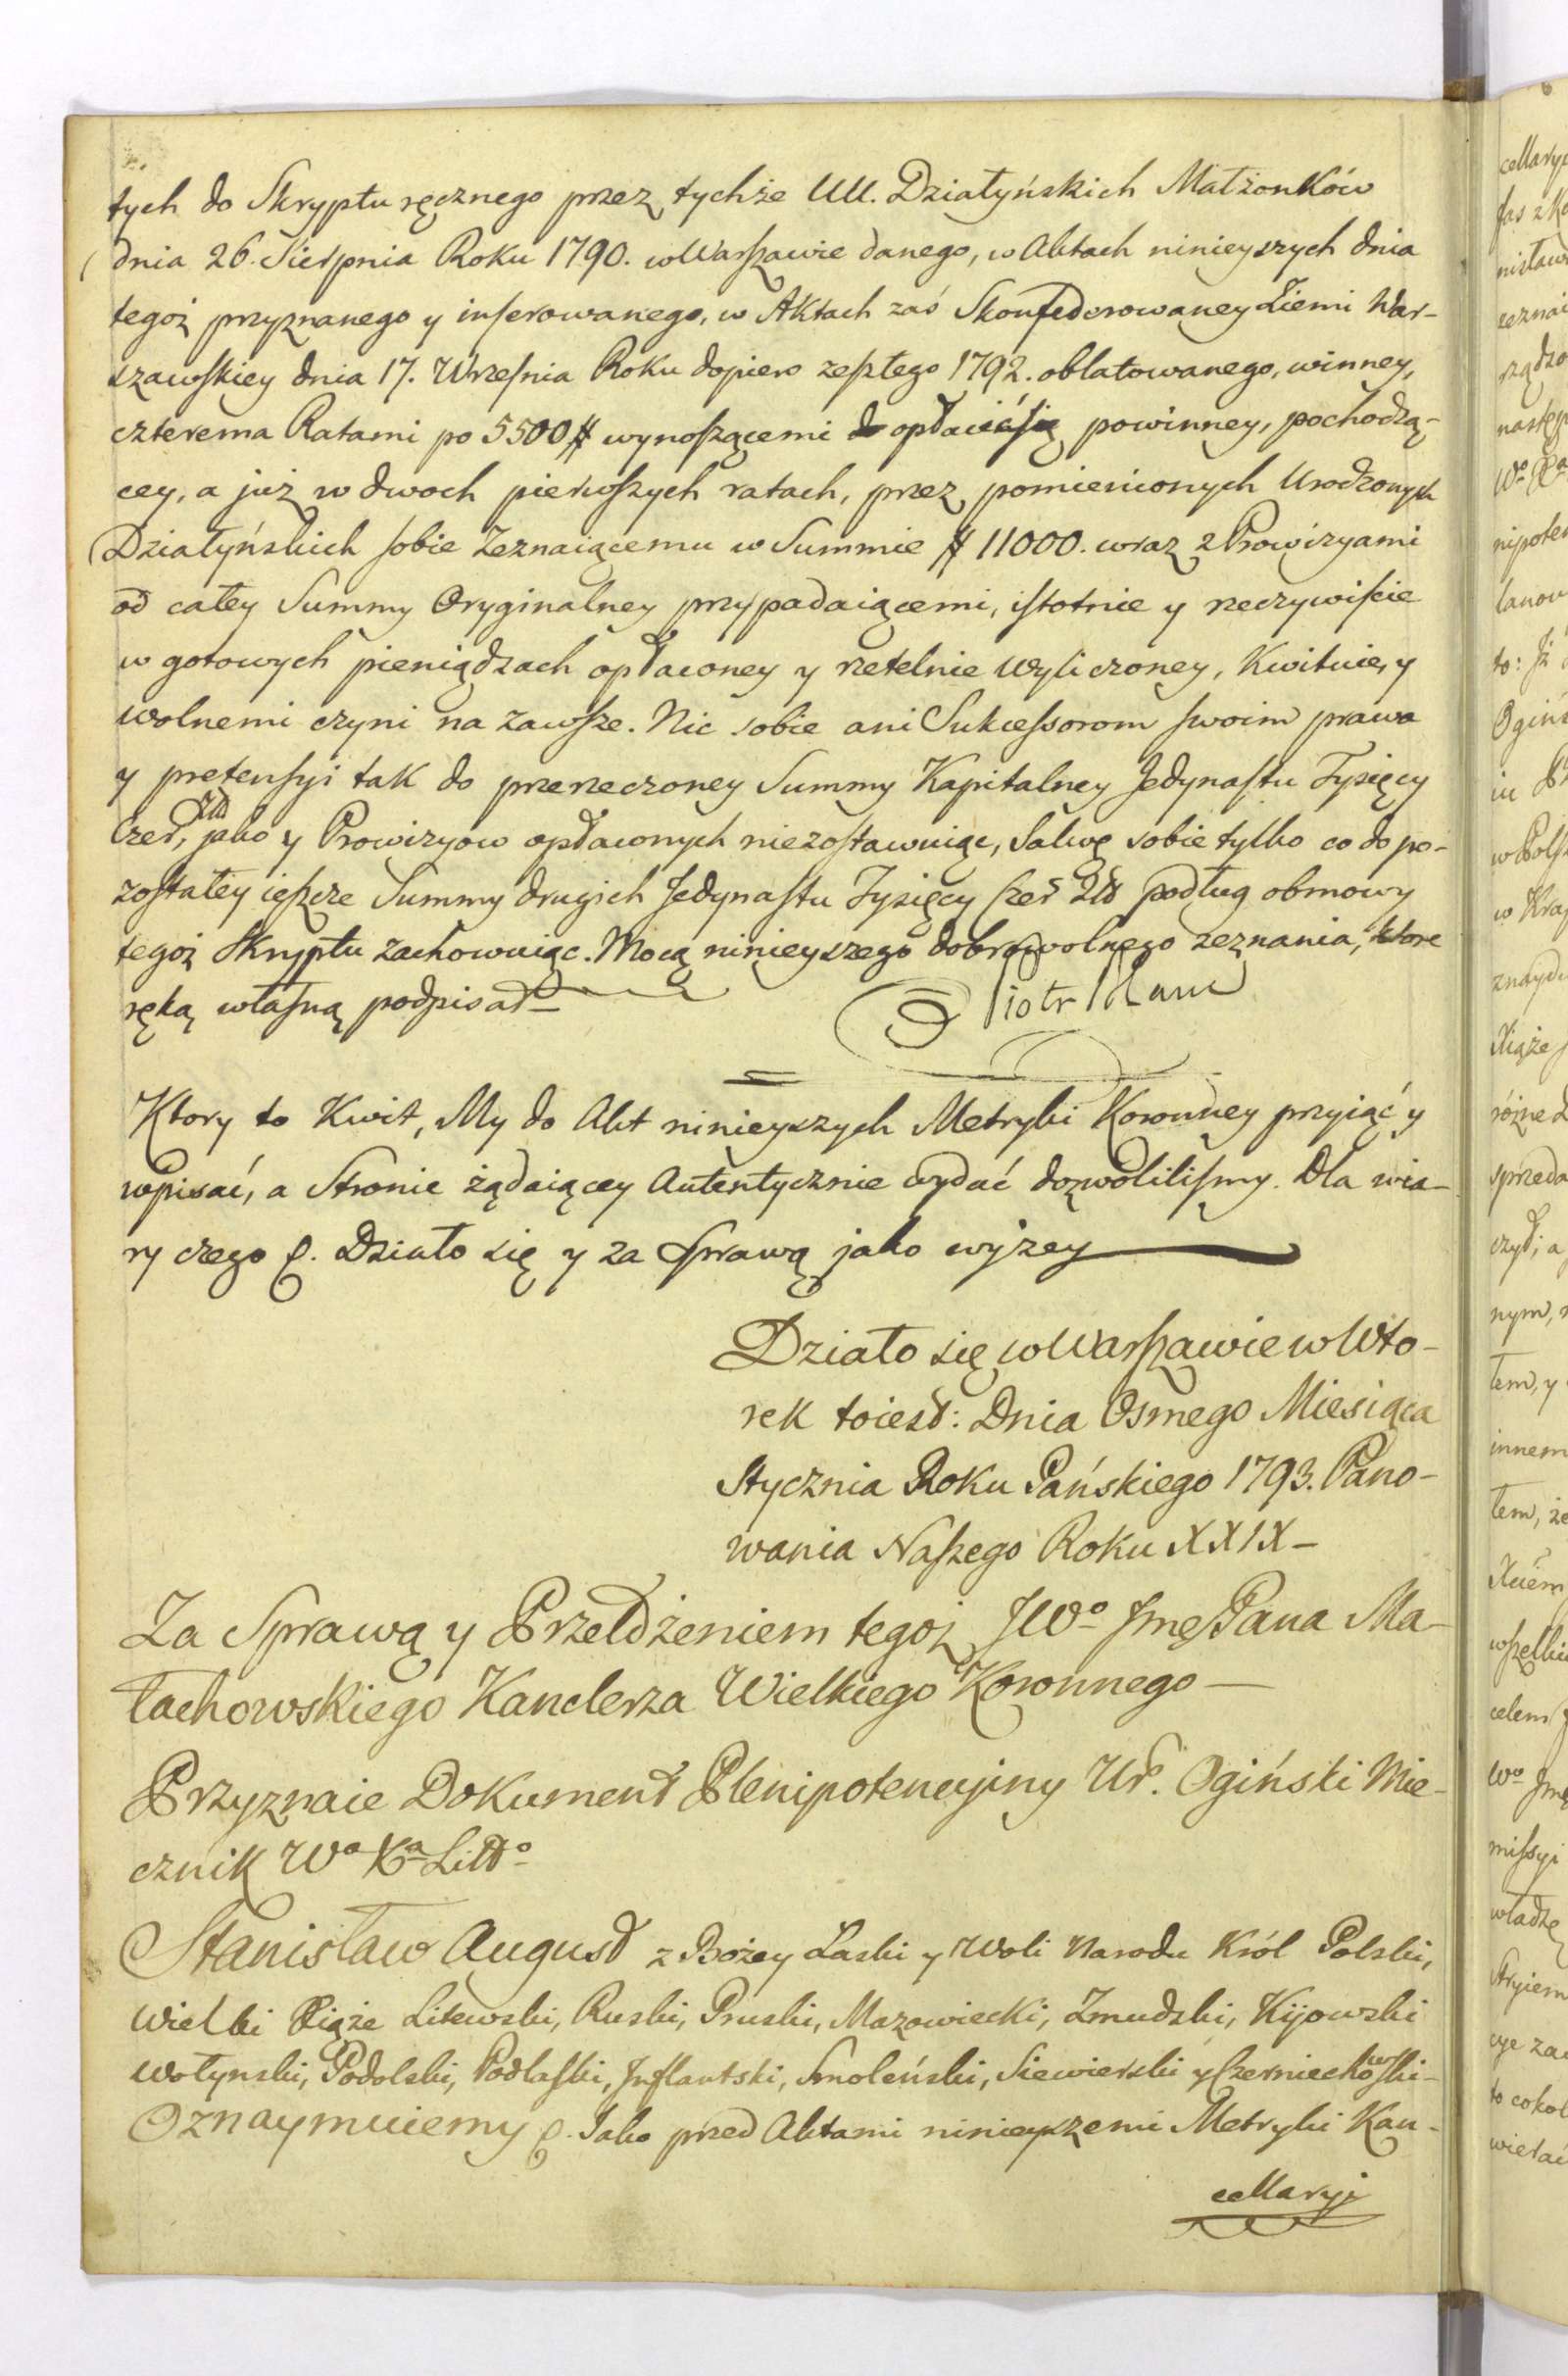 tych do Skryptu ręcznego przez tychże UU. Działyńskich Małżonków
dnia 26. Sierpnia Roku 1790. w Warszawie danego, w Aktach ninieyszych dnia
tegoż przyznanego y inserowanego, w Aktach zaś Skonfederowaney Ziemi War-
szawskiey dnia 17. Września Roku dopiero zeszłego 1792. oblatowanego, winney,
czterema Ratami po 5500 # wynoszącemi opłacić się powinney, pochodzą-
cey, a już w dwoch pierwszych ratach, przez pomienionych Urodzonych
Działyńskich sobie Zeznaiącemu w Summie # 11000. wraz z Prowizyami
od całey Summy Oryginalney przypadaiącemi, istotnie y rzeczywiście
w gotowych pieniądzach opłaconey y rzetelnie wyliczoney, Kwituie, y
wolnemi czyni na zawsze. Nic sobie ani Sukcessorom swoim prawa
y pretensyi tak do przerzeczoney Summy Kapitalney Jedynastu Tysięcy
Czer, Złł jako y Prowizyow opłaconych niezostawuiąc, Salwę sobie tylko co do po-
zostałey ieszcze Summy drugich Jedynastu Tysięcy Czer Złł podług obmowy
tegoż Skryptu zachowuiąc. Mocą ninieyszego dobrowolnego zeznania, ktore
ręką własną podpisał
Piotr Blanc
Ktory to Kwit, My do Akt ninieyszych Metryki Koronney przyiąć y
wpisać, a Stronie żądaiącey Autentycznie wydać dozwoliliśmy. Dla wia-
ry czego &. Działo się y za Sprawą jako wyżey
Działo się w Warszawie w Wto-
rek toiest: Dnia Osmego Miesiąca
Stycznia Roku Pańskiego 1793. Pano-
wania Naszego Roku XXIX
Za Sprawą y Przełożeniem tegoż JWo Jmę Pana Ma-
łachowskiego Kanclerza Wielkiego Koronnego
Przyznaie Dokument Plenipotencyiny Ur. Ogiński Mie-
cznik Wo Xa Litto
Stanisław August z Bożey Łaski y Woli Narodu Król Polski,
Wielki Xiąże Litewski, Ruski, Pruski, Mazowiecki, Zmudzki, Kijowski
Wołynski, Podolski, Podlaski, Inflantski, Smoleński, Siewierski y Czerniechowski
Oznaymuiemy &. Jako przed Aktami ninieyszemi Metryki Kan-
cellaryi